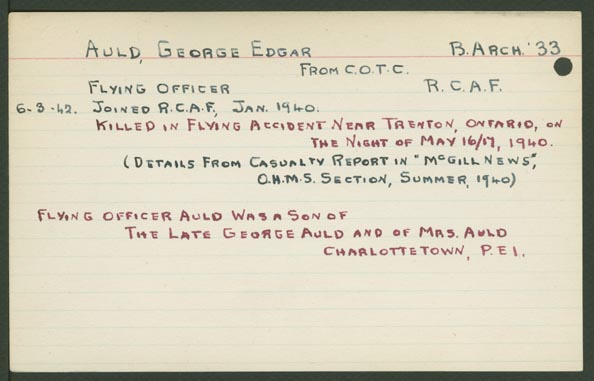 AULD, GEORGE EDGAR B.ARCH. '33
FROM C.O.T.C.
FLYING OFFICER R.C.A.F.
6-3-42. JOINED R.C.A.F., JAN. 1940.
KILLED IN FLYING ACCIDENT NEAR TRENTON, ONTARIO, ON
THE NIGHT OF MAY 16/17, 1940.
(DETAILS FROM CASUALTY REPORT IN "MCGILL NEWS",
O.H.M.S. SECTION, SUMMER, 1940)
FLYING OFFICER AULD WAS A SON OF
THE LATE GEORGE AULD AND OF MRS. AULD
CHARLOTTETOWN, P.E.I.